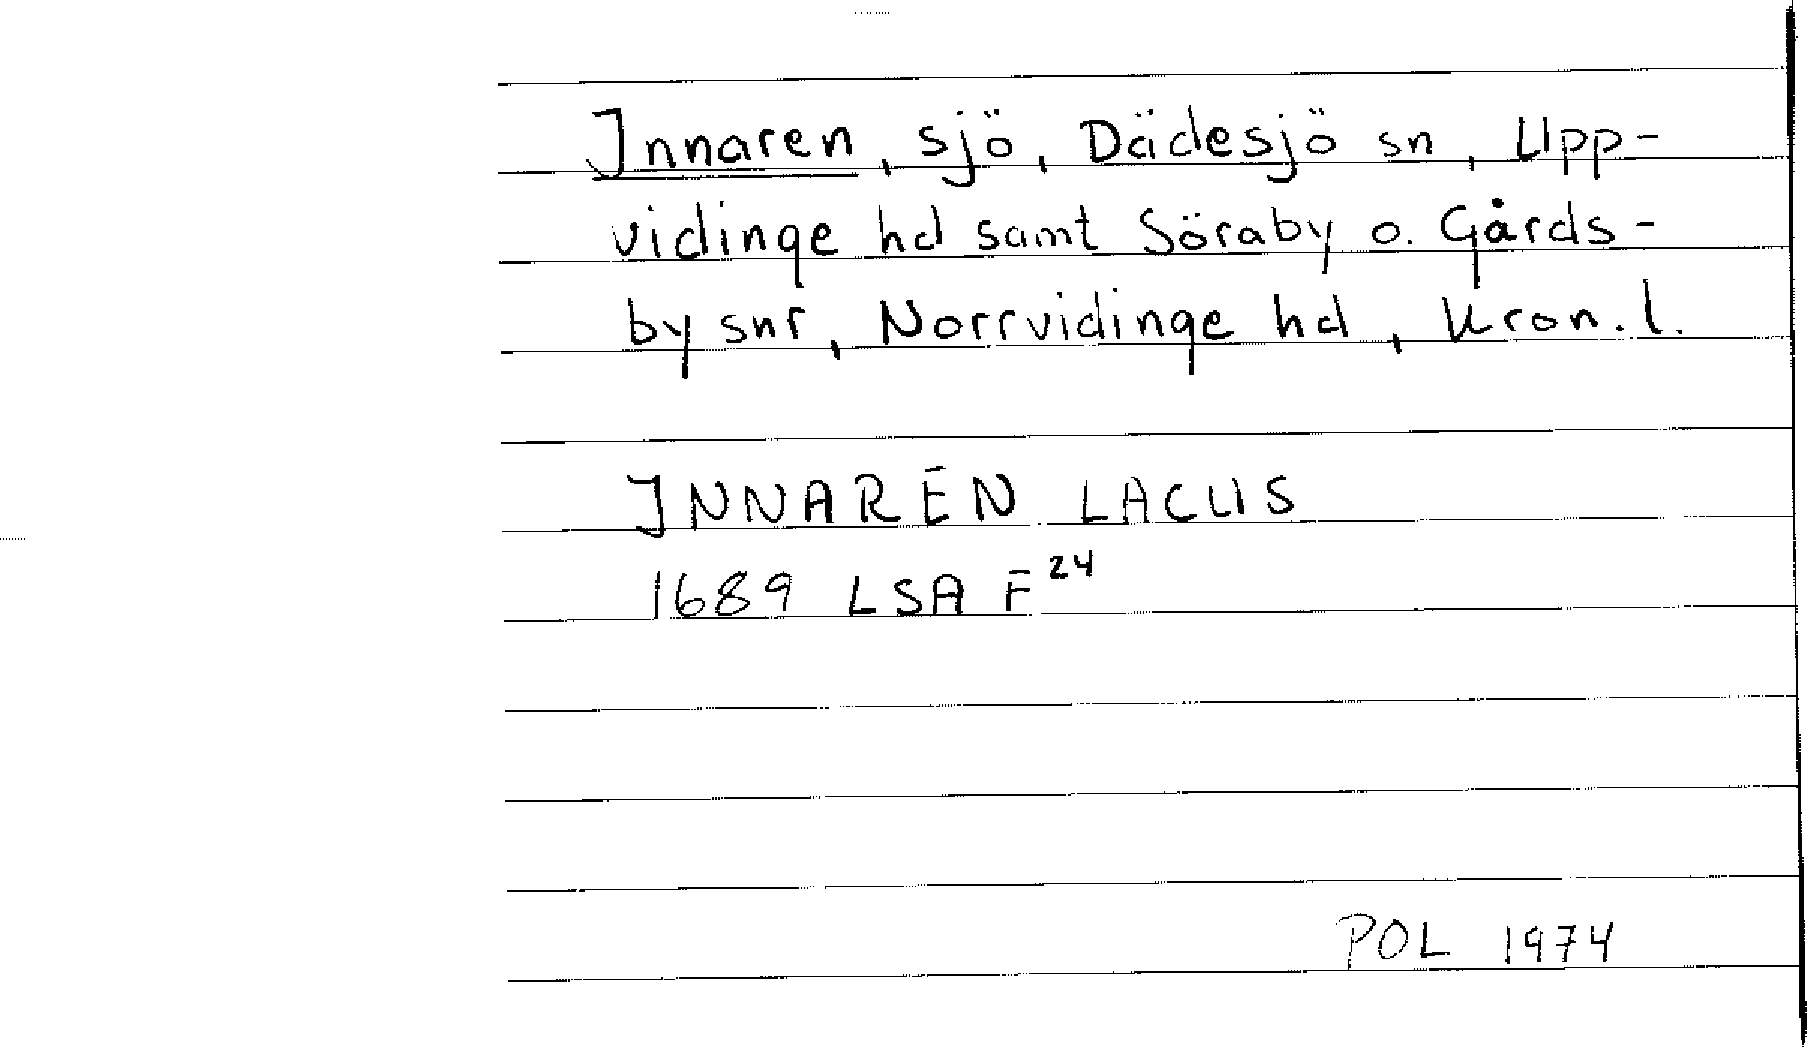 Innaren, sjö, Dädesjö sn, Upp-
vidinge hd samt Söraby o. Gårds-
by snr, Norrvidinge hd, Kron. l.
INNAREN LACUS
1689 LSA F24
POL 1974